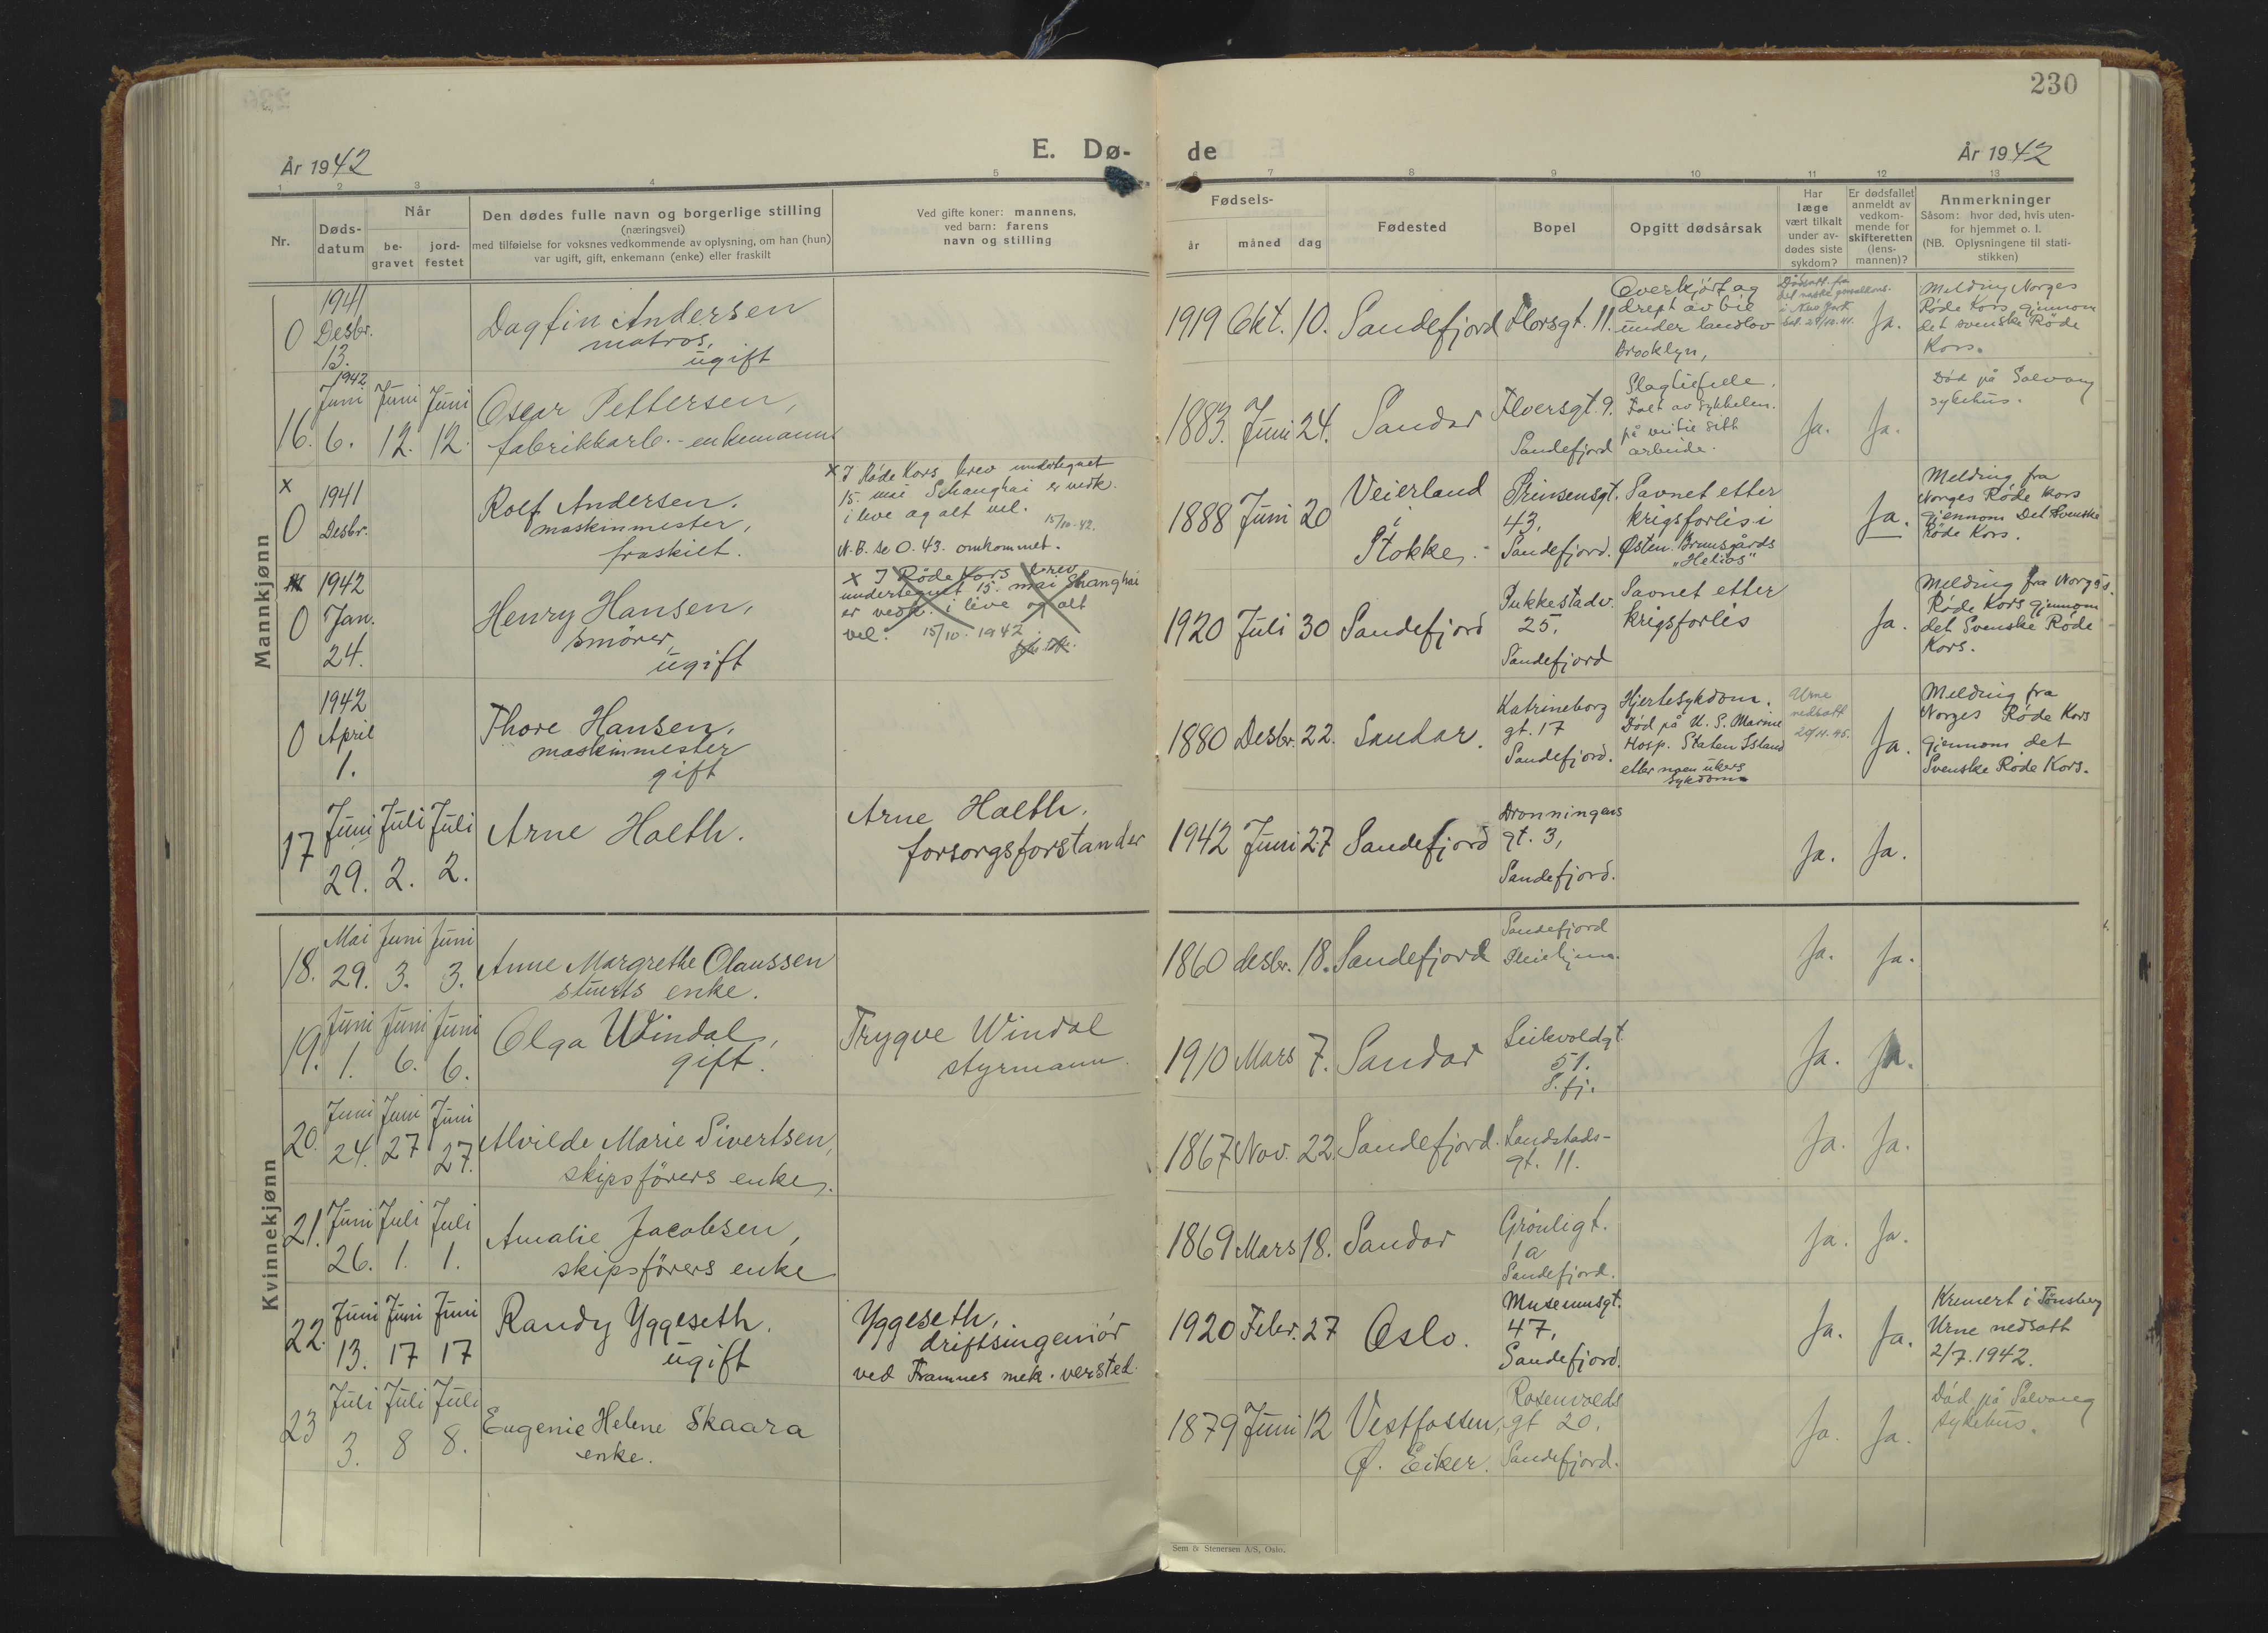 230
År 1942
E. Dø-
de
År 1942
1 2 3 4 5 6 7 8 9 10 11 12 13
Nr.
Døds-
datum
Når
be-
gravet
jord-
festet
Den dødes fulle navn og borgerlige stilling
(næringsvei)
med tilføielse for voksnes vedkommende av oplysning, om han (hun)
var ugift, gift, enkemann (enke) eller fraskilt
Ved gifte koner: mannens,
ved barn: farens
navn og stilling
Fødsels-
år måned dag
Fødested
Bopel
Opgitt dødsårsak
Har
læge
vært tilkalt
under av-
dødes siste
sykdom?
Er dødsfallet
anmeldt av
vedkom-
mende for
skifteretten
(lens-
mannen)?
Anmerkninger
Såsom: hvor død, hvis uten-
for hjemmet o. l.
(NB. Oplysningene til stati-
stikken)
Mannkjønn
0
1941
Desbr.
13.
Dagfin Andersen
matros,
ugift
1919 Okt. 10. Sandefjord
Florsgt. 11.
Overkjørt og
drept av bil
under landlov
Brooklyn,
Dødsatt. fra
det norske
i New York
Ja.
Melding Norges
Røde Kors gjennom
det svenske Røde
Kors.
16.
1942
Juni
6.
Juni
12.
Juni
12.
Oscar Pettersen,
fabrikkarb. - enkemann
1883. Juni 24. Sandar
Sandefjord
Slagtilfelle.
Falt av sykkelen.
på vei til sitt
arbeide.
Ja.
Ja.
Død på Solvang
sykehus.
x
0
1941
Desbr.
Rolf Andersen.
maskinmester,
fraskilt.
x I Røde Kors brev undertegnet
15. mai Schanghai er vedk.
i live og alt vel.
15/10-42.
N.B. se O. 43. omkommet.
1888 Juni 20
Veierland
i
Stokke.
Prinsensgt.
43,
Sandefjord.
Savnet etter
krigsforlis i
Østen. Bruusgårds
"Helios"
Ja.
Melding fra
Norges Røde Kors
gjennom Det Svenske
Røde Kors.
0
1942
Jan.
24.
Henry Hansen,
smører,
ugift
x I Røde Kors brev
undertegnet 15. mai Shanghai
er vedk. i live og alt
vel. 15/10-1942
1920 Juli 30 Sandefjord
Pukkestadv.
25,
Sandefjord
Savnet etter
krigsforlis
Ja.
Melding fra Norges
Røde Kors gjennom
det Svenske Røde
Kors.
0
1942
April
1.
Thore Hansen,
maskinmester
gift
1880 Desbr. 22. Sandar.
Katrineborg
gt. 17
Sandefjord.
Hjertesykdom.
Død på U. S. Marine
Hosp. Staten Island
etter noen ukers
sykdom
Urne
nedsatt
20/11.45.
Ja.
Melding fra
Norges Røde Kors
gjennom det
Svenske Røde Kors.
17
Juni
29.
Juli
2.
Juli
2.
Arne Holth.
Arne Holth.
forsorgsforstander
1942 Juni 27 Sandefjord
Dronningens
gt. 3,
Sandefjord.
Ja.
Ja.
Kvinnekjønn
18.
Mai
29.
Juni
3.
Juni
3.
Anne Margrethe Olaussen
stuerts enke.
1860 desbr. 18. Sandefjord
Sandefjord
Pleiehjem.
Ja.
Ja.
19.
Juni
1.
Juni
6.
Juni
6.
Olga Windal,
gift.
Trygve Windal
styrmann.
1910 Mars 7. Sandar
Leikvoldgt.
51.
S. fj.
Ja.
Ja.
20.
Juni
24.
Juni
27
Juni
27.
Alvilde Marie Sivertsen,
skipsførers enke.
1867 Nov. 22. Sandefjord.
Landstads-
gt. 11.
Ja.
Ja.
21.
Juni
26.
Juli
1.
Juli
1.
Amalie Jacobsen,
skipsførers enke
1869 Mars 18. Sandar
Grønligt.
1a
Sandefjord.
Ja.
Ja.
22.
Juni
13.
Juni
17
Juni
17
Randy Yggeseth.
ugift
Yggeseth,
driftsingeniør
ved Framnes mek. versted.
1920 Febr. 27 Oslo.
Museumsgt.
47,
Sandefjord.
Ja.
Ja.
Kremert i Tønsberg
Urne nedsatt
2/7.1942.
23
Juli
3.
Juli
8
Juli
8.
Eugenie Helene Skaara
enke.
1879 Juni 12
Vestfossen,
Ø. Eiker.
Rosenvolds
gt 20.
Sandefjord.
Ja.
Ja.
Død på Solvang
sykehus.
Sem & Stenersen A/S, Oslo.